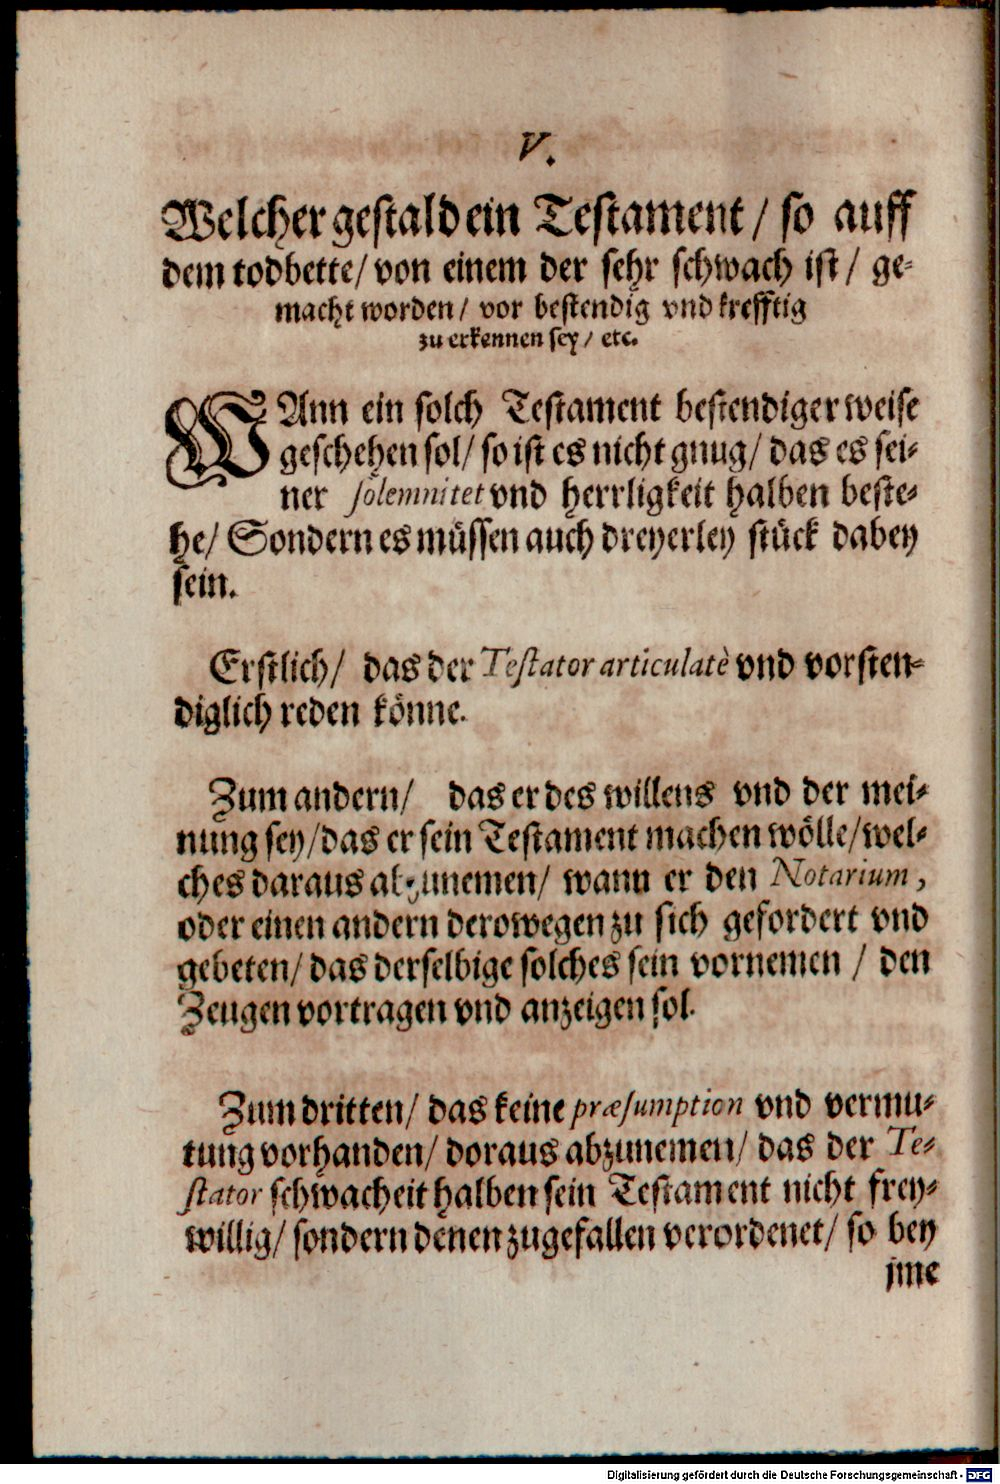 V.
Welcher gestald ein Testament / so auff
dem todbette / von einem der sehr schwach ist / ge-
macht worden / vor bestendig vnd krefftig
zu erkennen sey / etc.
WAnn ein solch Testament bestendiger weise
geschehen sol / so ist es nicht gnug / das es sei-
ner solemnitet vnd herrligkeit halben beste-
he / Sondern es müssen auch dreyerley stück dabey
sein.
Erstlich / das der Testator articulatè vnd vorsten-
diglich reden könne.
Zum andern / das er des willens vnd der mei-
nung sey / das er sein Testament machen wölle / wel-
ches daraus abzunemen / wann er den Notarium,
oder einen andern derowegen zu sich gefordert vnd
gebeten / das derselbige solches sein vornemen / den
Zeugen vortragen vnd anzeigen sol.
Zum dritten / das keine præsumption vnd vermu-
tung vorhanden / doraus abzunemen / das der Te-
stator schwacheit halben sein Testament nicht frey-
willig / sondern denen zugefallen verordenet / so bey
jme
Digitalisierung gefördert durch die Deutsche Forschungsgemeinschaft - DFG